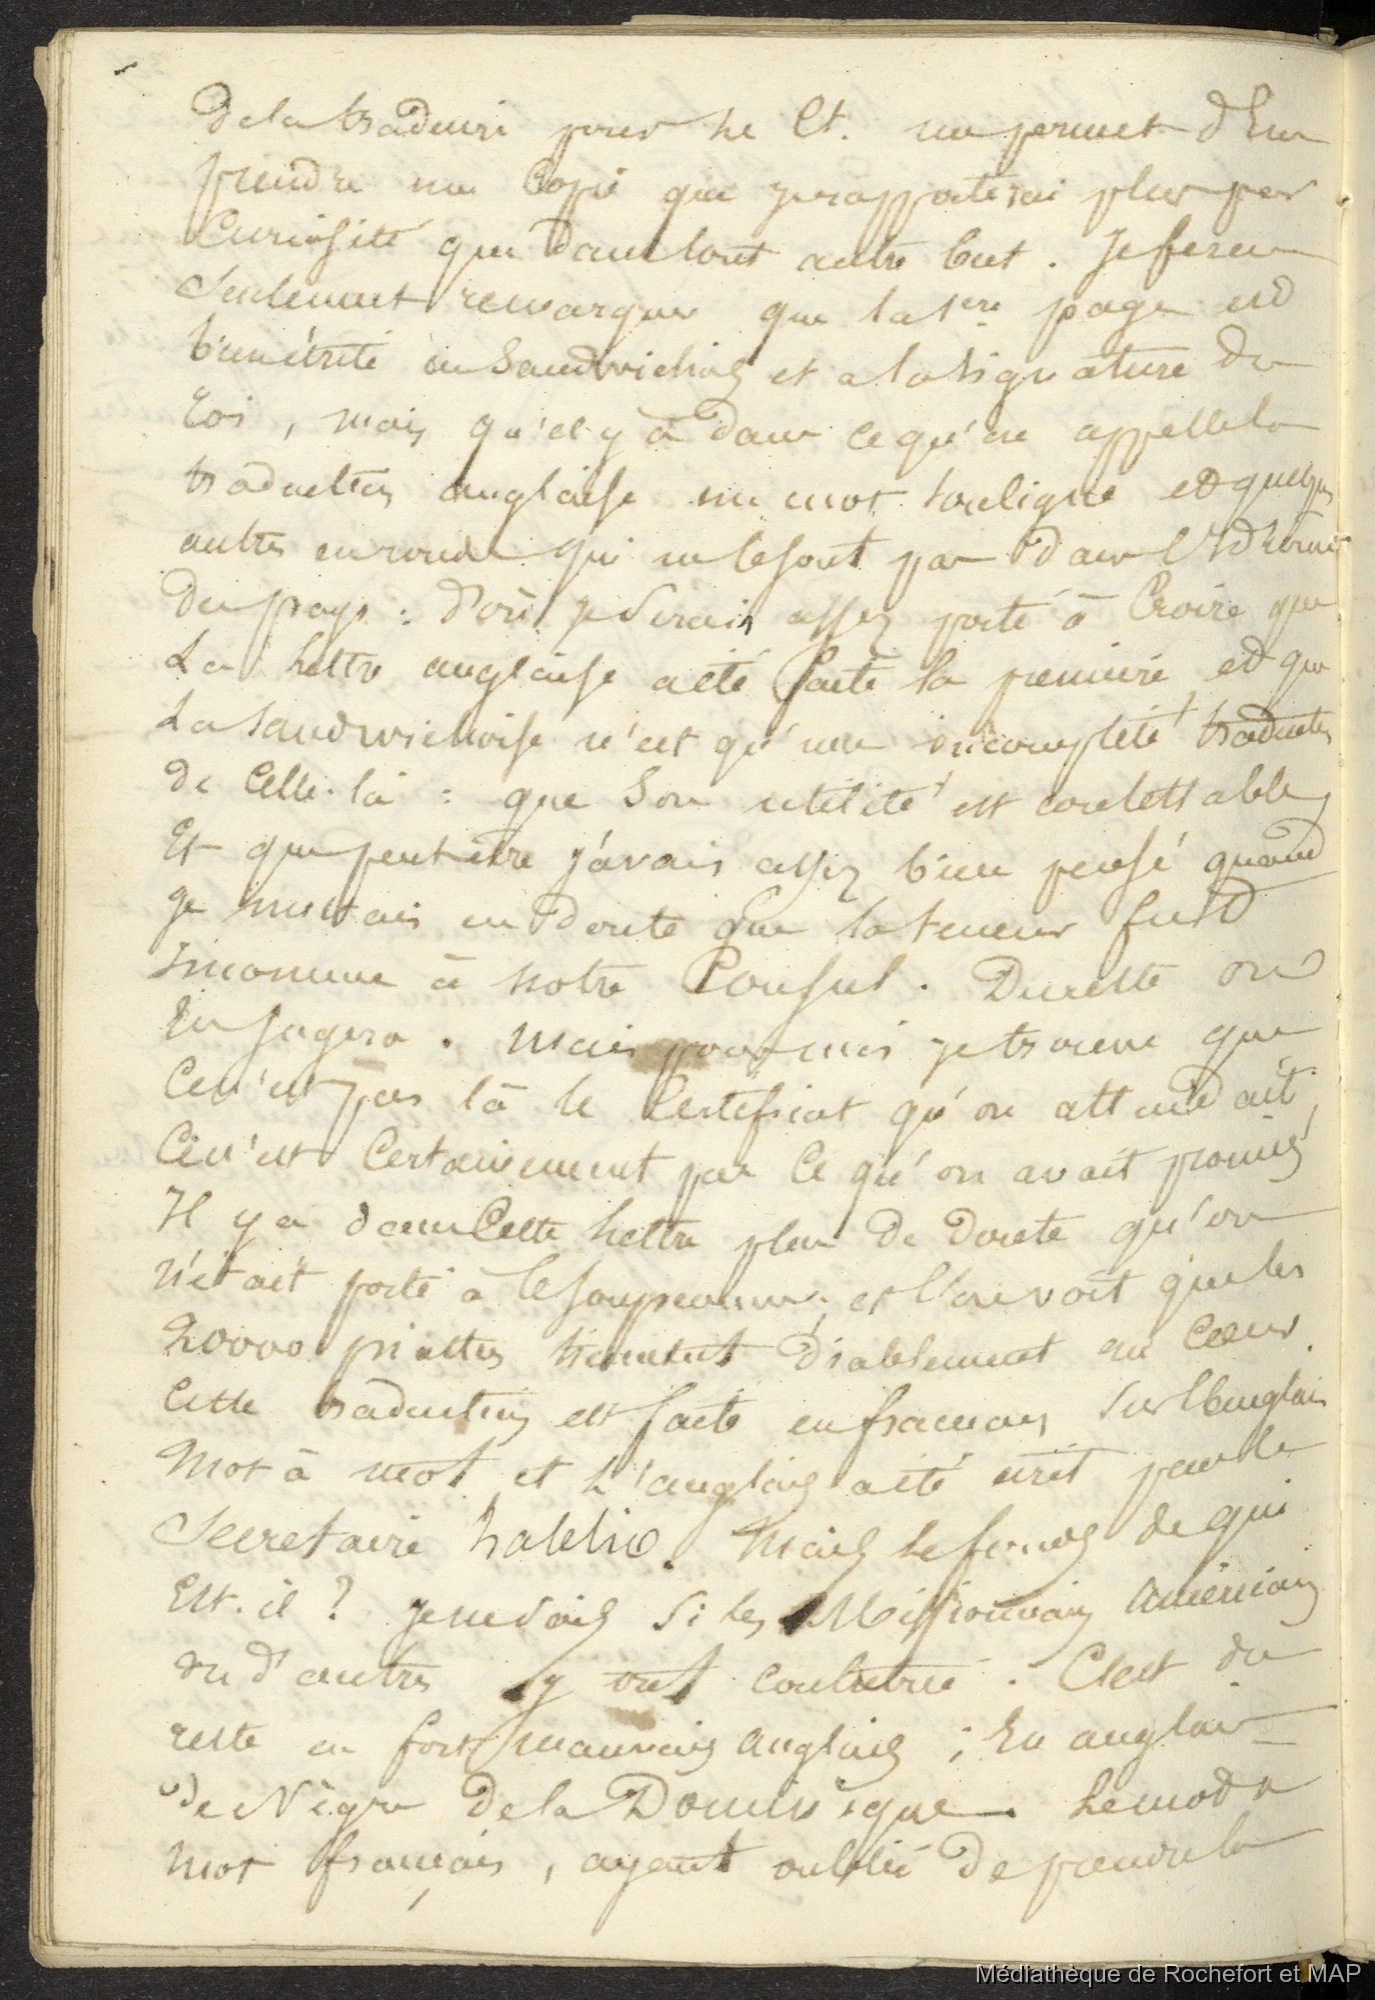 De la traduire pour le Ct. me permet d'En
prendre une Copie que je rapporterai plus par
Curiosité que dans tout autre but. Je ferai
Seulement remarquer que la 1ere page est
bien écrite en Sandwichois et a la signature du
roi, mais qu'il y a dans ce qu'on appelle la
traduction anglaise un mot souligné et quelques
autres en ronde qui ne le sont pas dans l'Idiome
du pays : d'où je serais assez porté à Croire que
La lettre anglaise a été faite la première et que
La Sandwichoise n'est qu'une incomplète traduction
de Celle-là : que Son utilité est contestable,
Et que peut être j'avais assez bien pensé quand
je mettais en doute que la teneur fut
inconnue à notre Consul. Du reste on
En Jugera. Mais pour moi je trouve que
Ce n'est pas là le Certificat qu'on attendait,
Ce n'est Certainement pas Ce qu'on avait promis
Il y a dans Cette lettre plus de doute qu'on
n'était porté à le soupçonner, et l'on voit que les
20000 piastres tiennent diablement au Cœur.
Cette traduction est faite en francais sur l'anglais
Mot à mot, et L'anglais a été écrit par le
Secretaire hablio. Mais le fonds de qui
Est-il ? je ne sais si les Missionnaires Américains
ou d'autres y ont contribué. C'est du
reste en fort mauvais anglais ; En anglais
de Nègre de la Dominique. Le mot à
mot français, ayant oublié de prendre la
Médiathèque de Rochefort et MAP